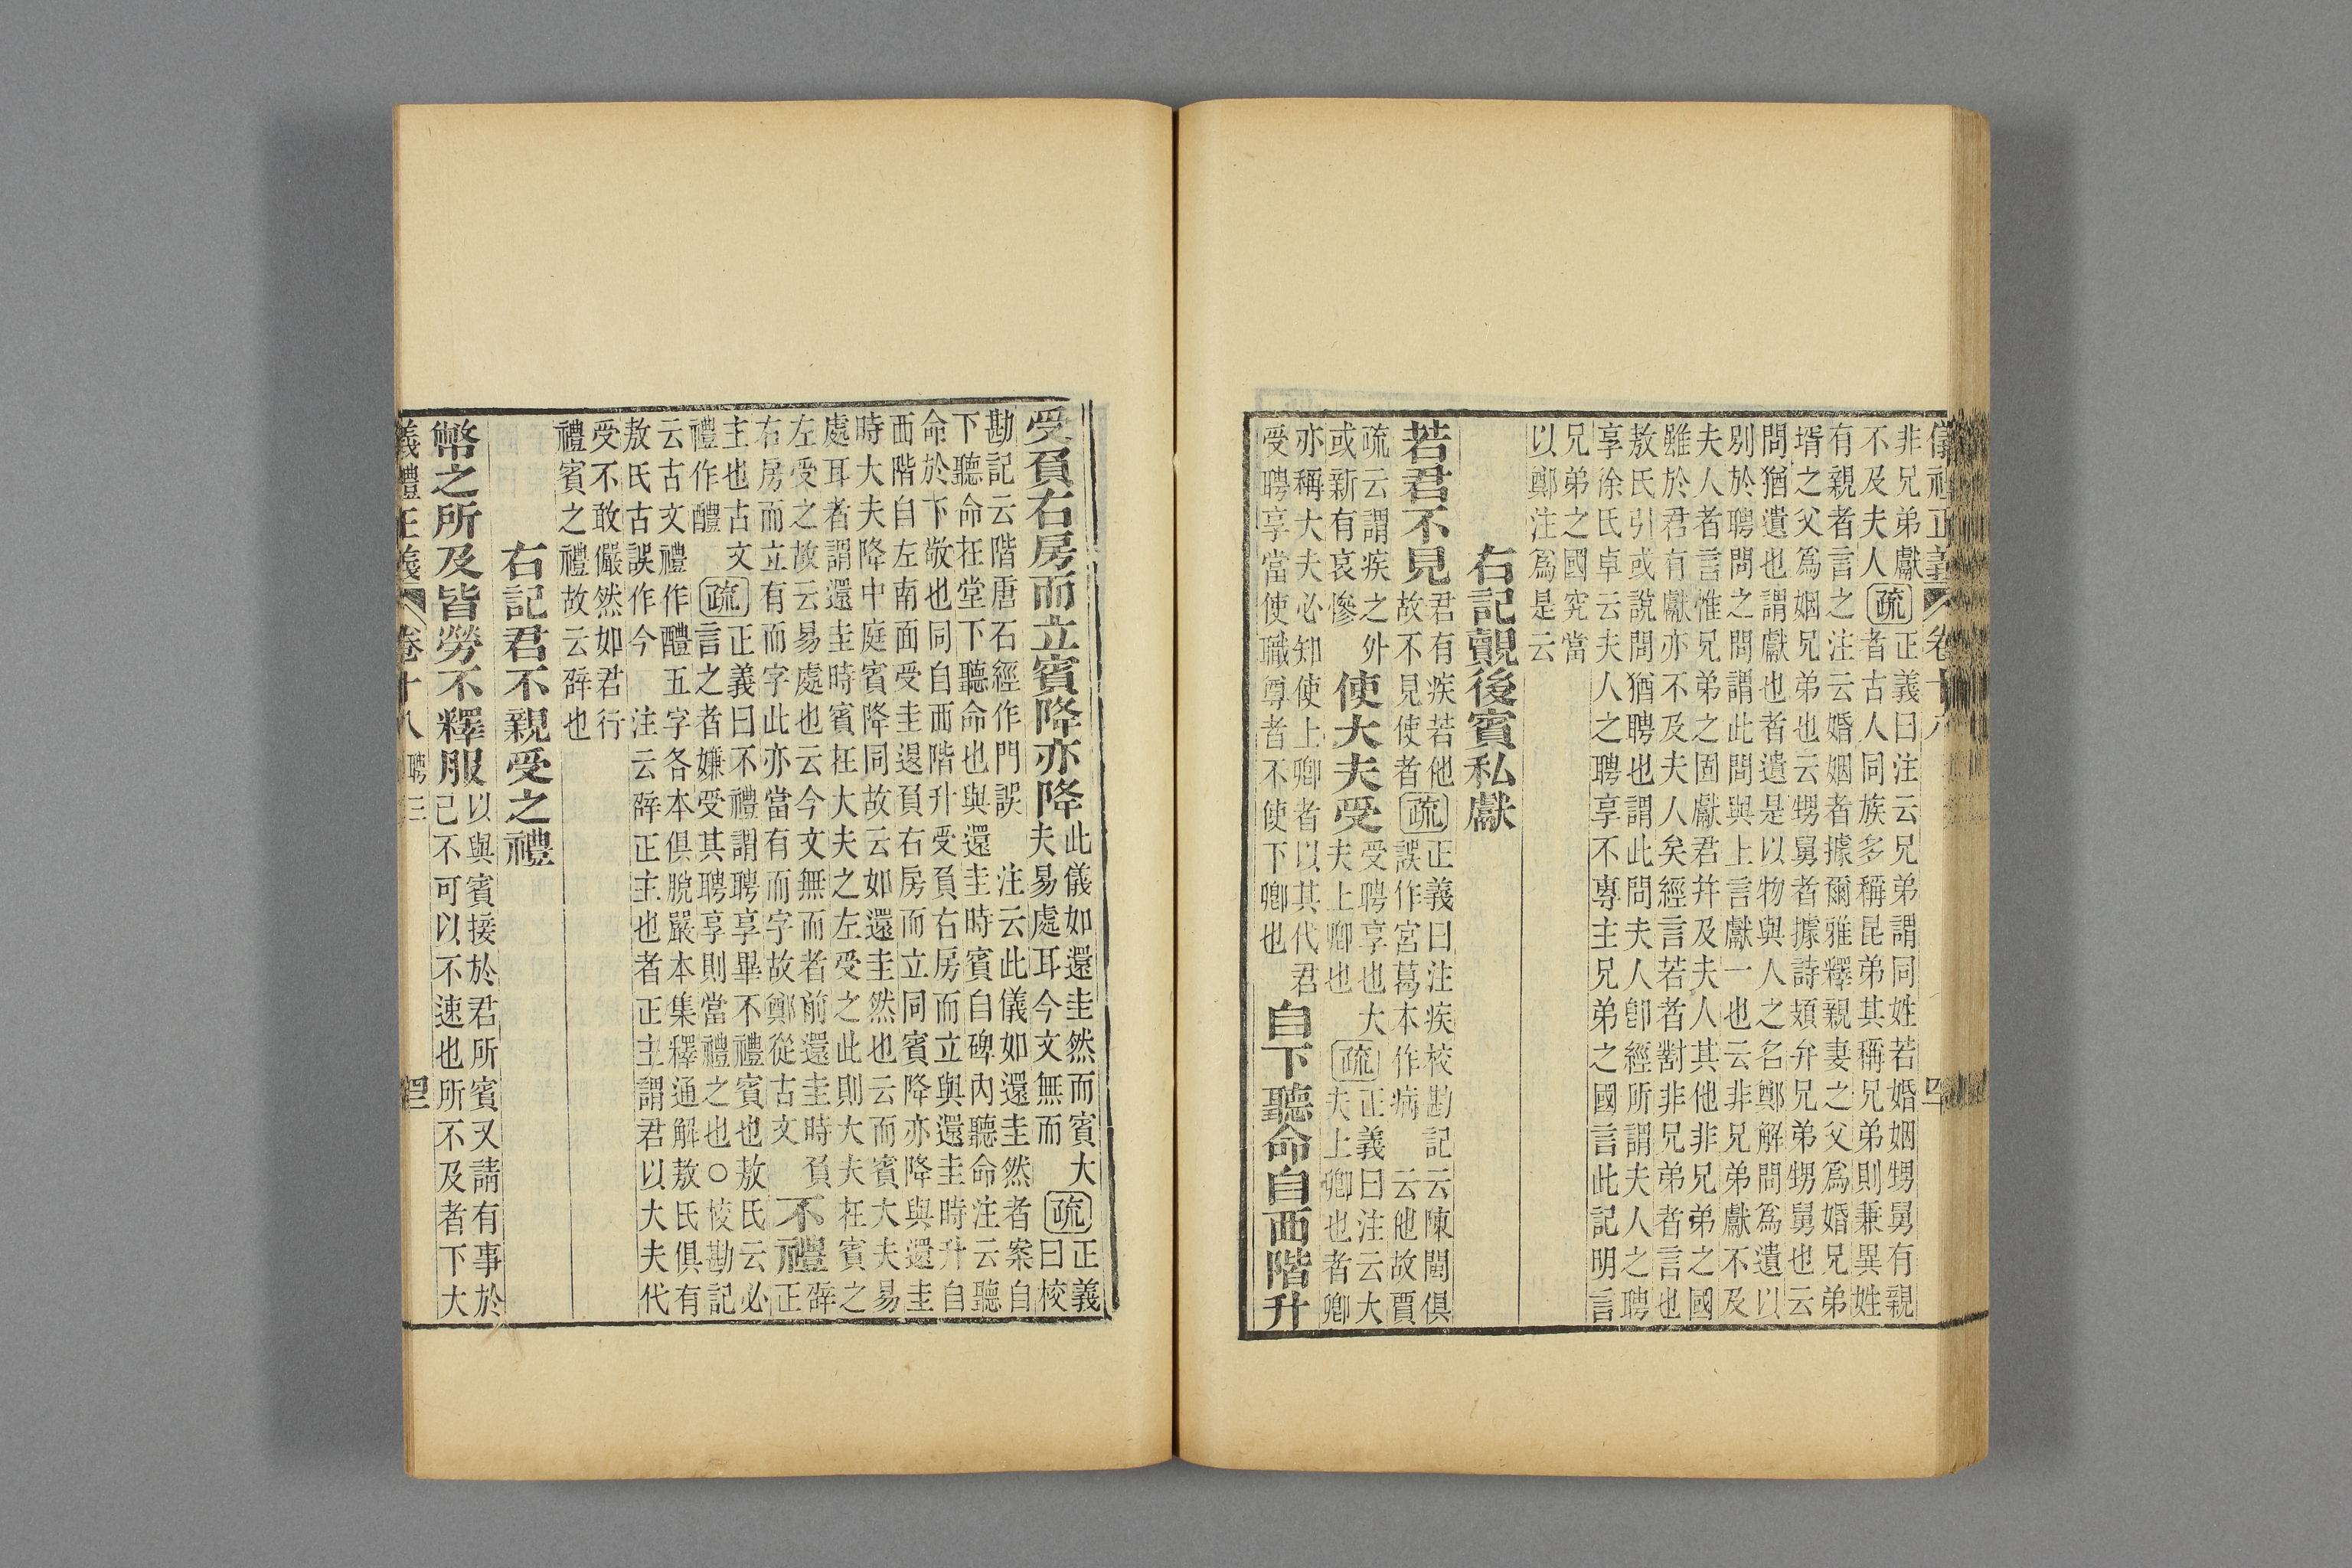 非兄弟獻不及夫人疏正義曰注云兄弟謂同姓若婚姻甥舅有親
者古人同族多稱昆弟其稱兄弟則兼異姓
有親者言之注云婚姻者據爾雅釋親妻之父爲婚兄弟
壻之父爲姻兄弟也云甥舅者據詩頍弁兄弟甥舅也云
問猶遺也謂獻也者遺是以物與人之名鄭解問爲遺以
別於聘問之問謂此問與上言獻一也云非兄弟獻不及
夫人者言惟兄弟之國獻君幷及夫人其他非兄弟之國
雖於君有獻亦不及夫人矣經言若者對非兄弟者言也
敖氏引或說問猶聘也謂此問夫人卽經所謂夫人之聘
享徐氏卓云夫人之聘享不專主兄弟之國言此記明言
兄弟之國究當
以鄭注爲是云
右記覿後賓私獻
若君不見君有疾若他故不見使者疏正義曰注疾校勘記云陳閩俱誤作宮葛本作病 云他故賈
疏云謂疾之外或新有哀慘使大夫受受聘享也大夫上卿也疏正義曰注云大夫上卿也者卿
亦稱大夫必知使上卿者以其代君受聘享當使職尊者不使下卿也自下聽命自西階升
受負右房而立賓降亦降此儀如還圭然而賓大夫易處耳今文無而疏正義曰校
勘記云階唐石經作門誤 注云此儀如還圭然者案自
下聽命在堂下聽命也與還圭時賓自碑內聽命注云聽
命於下敬也同自西階升受負右房而立與還圭時升自
西階自左南面受圭退負右房而立同賓降亦降與還圭
時大夫降中庭賓降同故云如還圭然也云而賓大夫易
處耳者謂還圭時賓在大夫之左受之此則大夫在賓之
左受之故云易處也云今文無而者前還圭時負
右房而立有而字此亦當有而字故鄭從古文不禮辭正
主也古文禮作醴疏正義曰不禮謂聘享畢不禮賓也敖氏云必
言之者嫌受其聘享則當禮之也○校勘記
云古文禮作醴五字各本俱脫嚴本集釋通解敖氏俱有
敖氏古誤作今 注云辭正主也者正主謂君以大夫代
受不敢儼然如君行
禮賓之禮故云辭也
右記君不親受之禮
幣之所及皆勞不釋服以與賓接於君所賓又請有事於
己不可以不速也所不及者下大
儀禮正義 卷十八 聘三